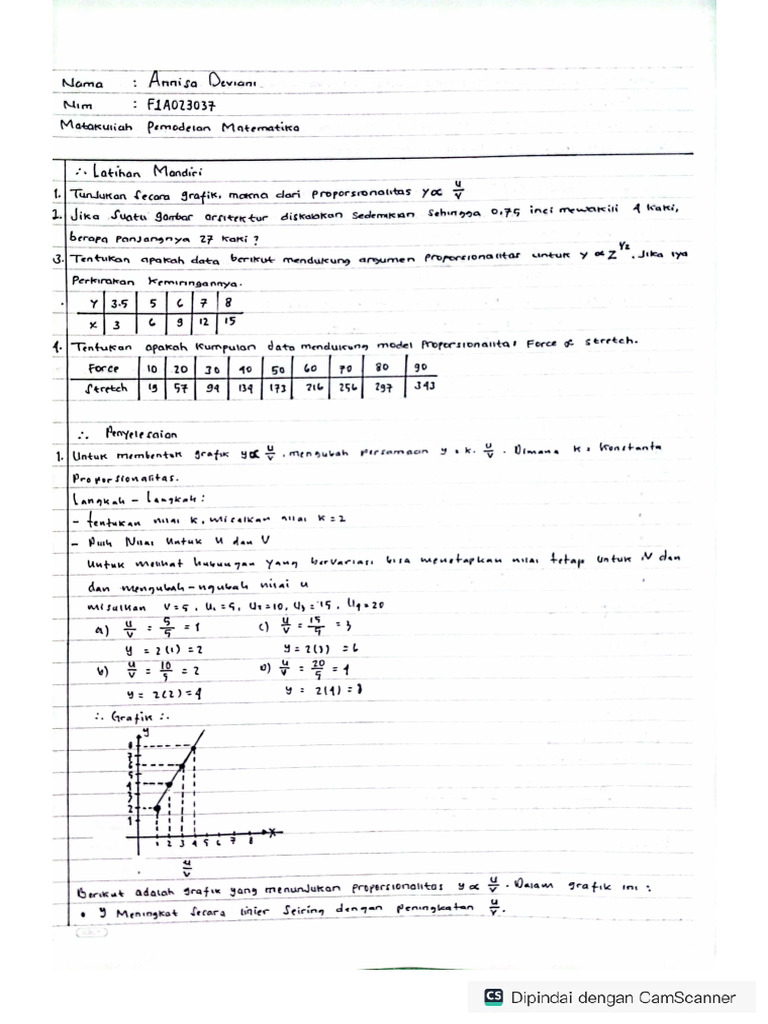 Nama : Annisa Deviani
Nim : F1A023037
Matakuliah Pemodelan Matematika
∴ Latihan Mandiri
1. Tunjukan Secara grafik, makna dari proporsionalitas y∝ u/v
2. Jika Suatu gambar arsitektur diskalakan Sedemikian Sehingga 0,75 inci mewakili 4 kaki,
berapa panjangnya 27 kaki ?
3. Tentukan apakah data berikut mendukung argumen proporsionalitas untuk y ∝ Z^1/2. Jika iya
Perkirakan kemiringannya.
Y 3.5 5 6 7 8
X 3 6 9 12 15
4. Tentukan apakah kumpulan data mendukung model proporsionalitas Force ∝ stretch.
Force 10 20 30 40 50 60 70 80 90
Stretch 19 57 94 134 173 216 256 297 343
∴ Penyelesaian
1. Untuk membentuk grafik y∝ u/v, mengubah persamaan y = k. u/v. Dimana k = konstanta
Proporsionalitas.
Langkah - Langkah :
- tentukan nilai k, misalkan nilai k = 2
- Pilih Nilai Untuk U dan V
Untuk melihat hubungan yang bervariasi bisa menetapkan nilai tetap untuk V dan
dan mengubah-ngubah nilai u
Misalkan V = 5, U₁ = 5, U₂ = 10, U₃ = 15, U₄ = 20
a) u/v = 5/5 = 1 c) u/v = 15/5 = 3
y = 2(1) = 2 y = 2(3) = 6
b) u/v = 10/5 = 2 d) u/v = 20/5 = 4
y = 2(2) = 4 y = 2(4) = 8
∴ Grafik ∴
y
8
7
6
5
4
3
2
1
1 2 3 4 5 6 7 8 x
u/v
Berikut adalah grafik yang menunjukan proporsionalitas y ∝ u/v. Dalam grafik ini :
• y Meningkat secara linier Seiring dengan peningkatan u/v.
CS Dipindai dengan CamScanner